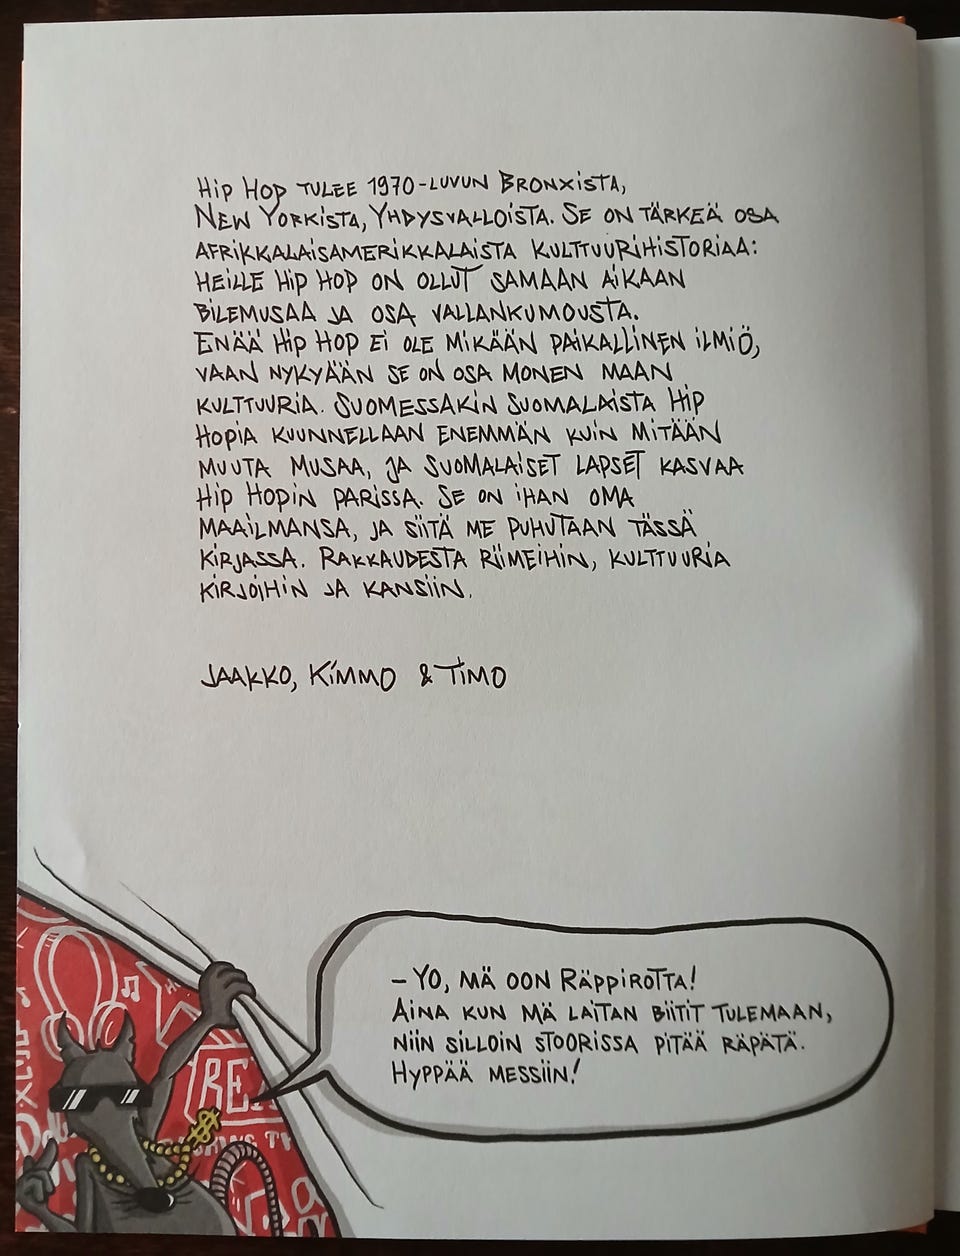 Hip Hop tulee 1970-luvun Bronxista,
New Yorkista, Yhdysvalloista. Se on tärkeä osa
afrikkalaisamerikkalaista kulttuurihistoriaa:
heille Hip Hop on ollut samaan aikaan
bilemusaa ja osa vallankumousta.
Enää Hip Hop ei ole mikään paikallinen ilmiö,
vaan nykyään se on osa monen maan
kulttuuria. Suomessakin suomalaista Hip
Hopia kuunnellaan enemmän kuin mitään
muuta musaa, ja suomalaiset lapset kasvaa
Hip Hopin parissa. Se on ihan oma
maailmansa, ja siitä me puhutaan tässä
kirjassa. Rakkaudesta riimeihin, kulttuuria
kirjoihin ja kansiin.
Jaakko, Kimmo & Timo
– Yo, mä oon Räppirotta!
Aina kun mä laitan biitit tulemaan,
niin silloin stoorissa pitää räpätä.
Hyppää messiin!